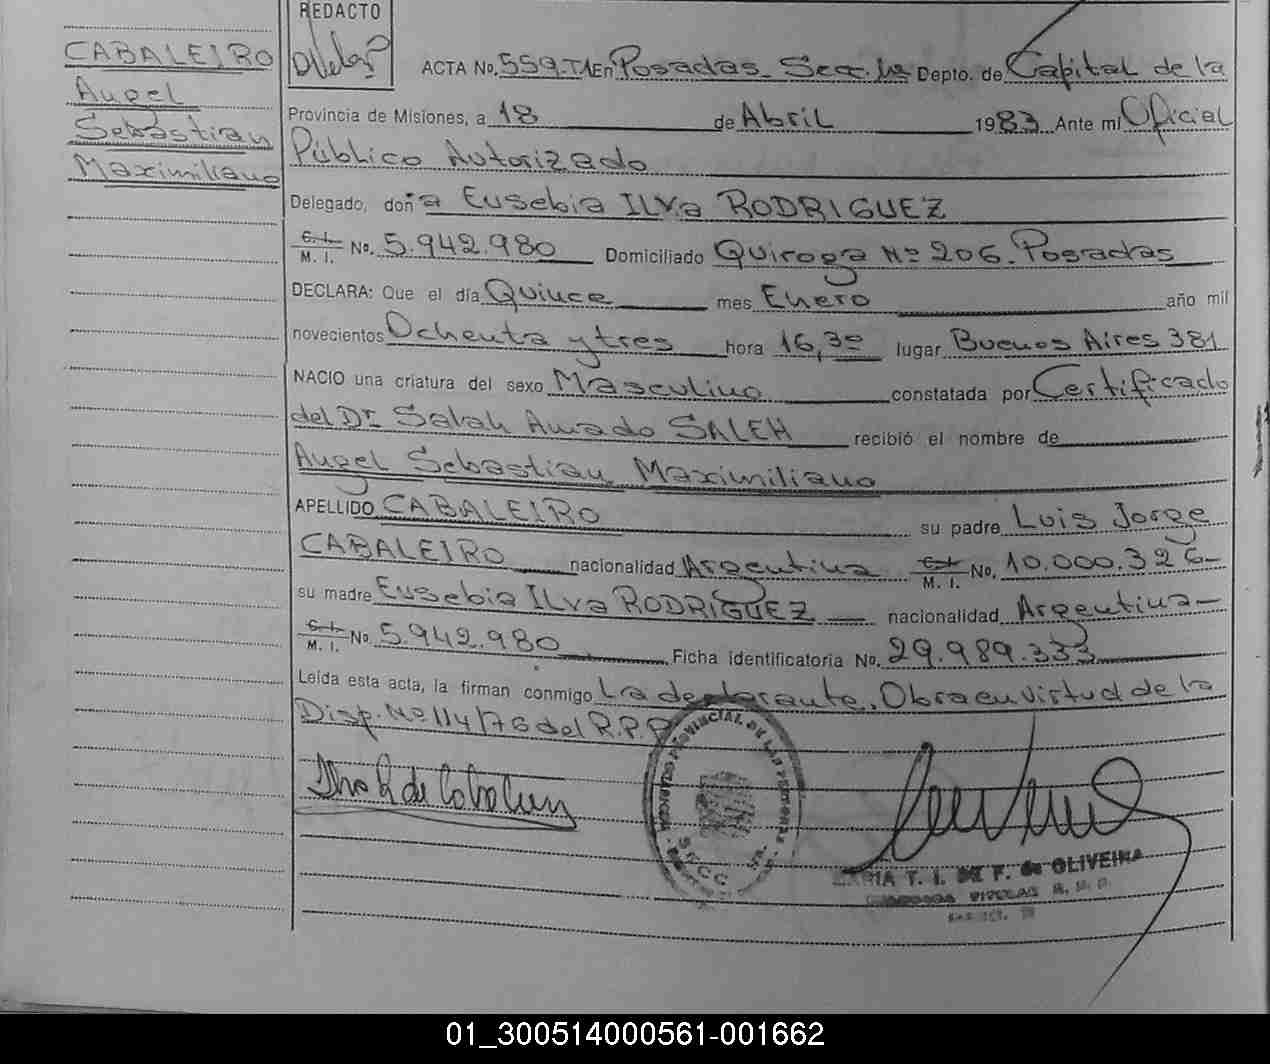 REDACTO
CABALEIRO
Angel
Sebastian
Maximiliano
ACTA No. 559-TA En Posadas - Secc. 1ra Depto. de Capital de la
Provincia de Misiones, a 18 de Abril 1983 Ante mi Oficial
Público Autorizado
Delegado, doña Eusebia ILVA RODRIGUEZ
C. I. M. I. No. 5.942.980 Domiciliado Quiroga Nº 206. Posadas
DECLARA: Que el día Quince mes Enero año mil
novecientos Ochenta y tres hora 16,30 lugar Buenos Aires 381
NACIO una criatura del sexo Masculino constatada por Certificado
del Dr Salah Amado SALEH recibió el nombre de
Angel Sebastian Maximiliano
APELLIDO CABALEIRO su padre Luis Jorge
CABALEIRO nacionalidad Argentina C. I. M. I. No. 10.000.326-
su madre Eusebia ILVA RODRIGUEZ nacionalidad Argentina-
C. I. M. I. No. 5.942.980 Ficha identificatoria No. 29.989.333
Leída esta acta, la firman conmigo La declarante. Obra en virtud de la
Disp. Nº 114/76 del R.P.P.
PROVINCIAL DE LAS PERSONAS
MARIA T. I. DE F. de OLIVEIRA
01_300514000561-001662